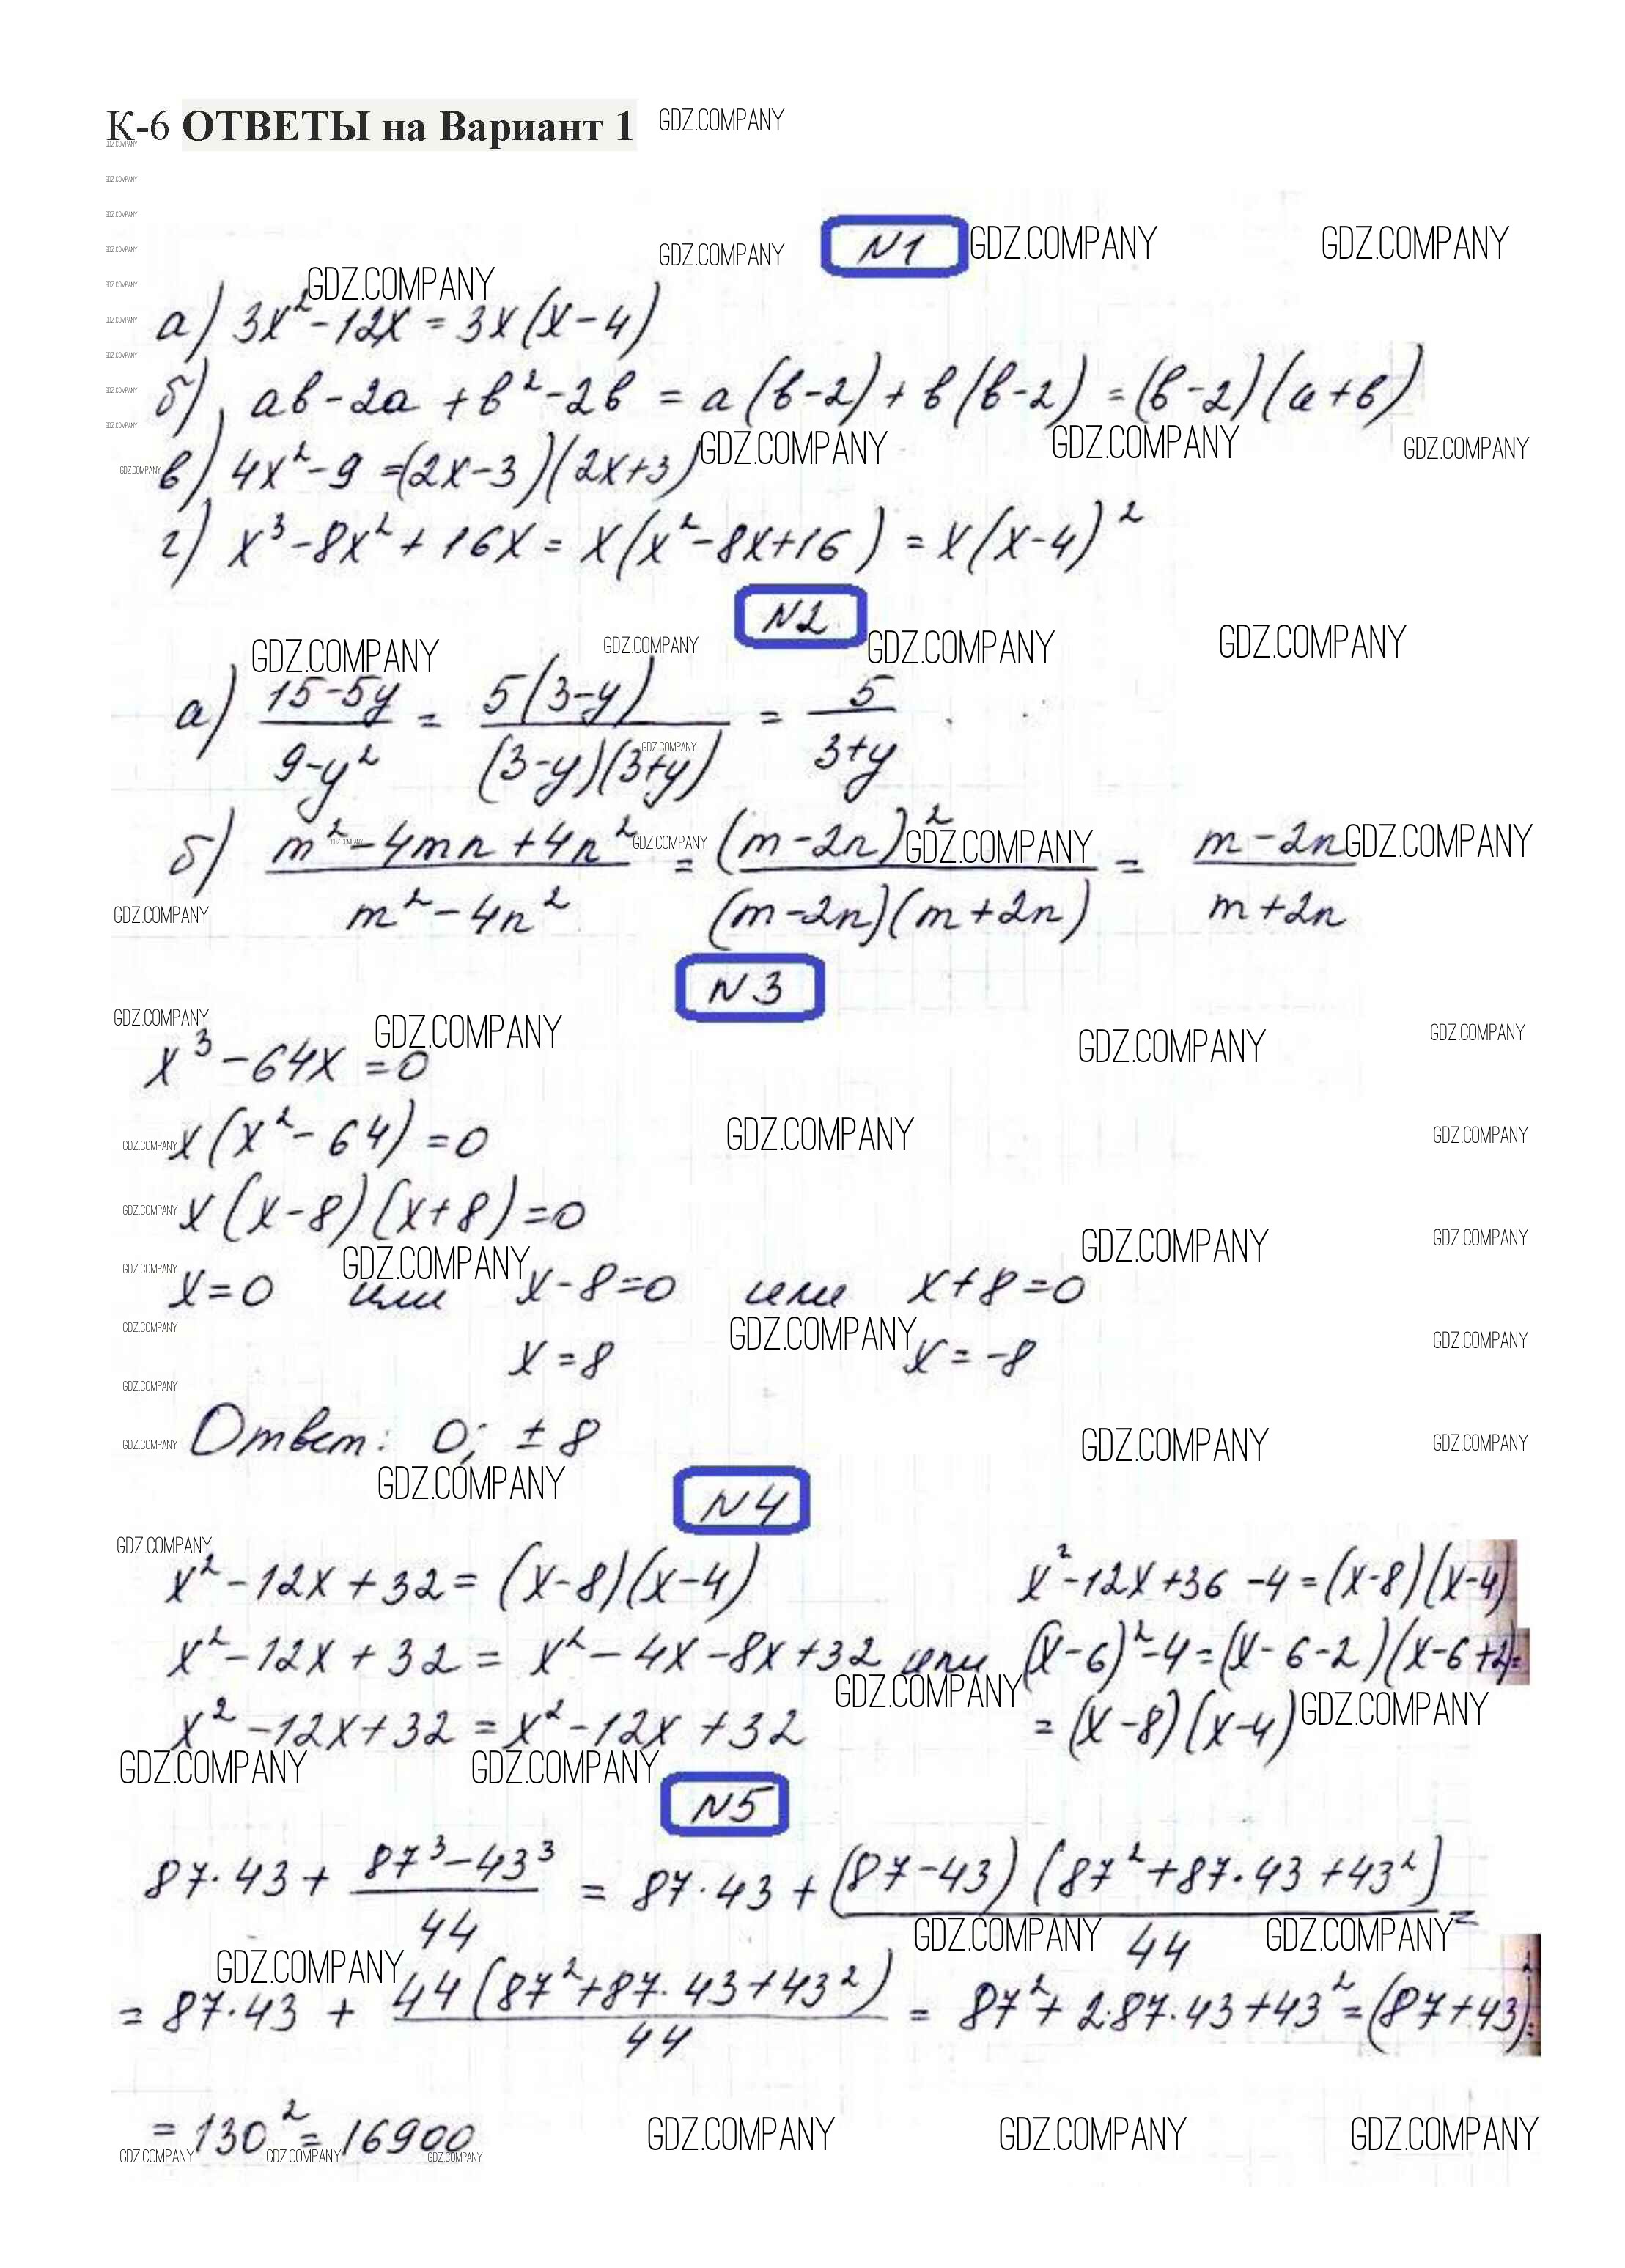 К-6 ОТВЕТЫ на Вариант 1 GDZ.COMPANY
N1
а) 3x² - 12x = 3x(x-4)
б) ab - 2a + b² - 2b = a(b-2) + b(b-2) = (b-2)(a+b)
в) 4x² - 9 = (2x-3)(2x+3)
г) x³ - 8x² + 16x = x(x² - 8x + 16) = x(x-4)²
N2
а) (15-5y)/(9-y²) = 5(3-y)/((3-y)(3+y)) = 5/(3+y)
б) (m² - 4mn + 4n²)/(m² - 4n²) = (m-2n)²/((m-2n)(m+2n)) = (m-2n)/(m+2n)
N3
x³ - 64x = 0
x(x² - 64) = 0
x(x-8)(x+8) = 0
x=0 или x-8=0 или x+8=0
x=8 x=-8
Ответ: 0; ±8
N4
x² - 12x + 32 = (x-8)(x-4) x² - 12x + 36 - 4 = (x-8)(x-4)
x² - 12x + 32 = x² - 4x - 8x + 32 или (x-6)² - 4 = (x-6-2)(x-6+2) =
x² - 12x + 32 = x² - 12x + 32 = (x-8)(x-4)
N5
87·43 + (87³ - 43³)/44 = 87·43 + (87-43)(87² + 87·43 + 43²)/44 =
= 87·43 + 44(87² + 87·43 + 43²)/44 = 87² + 2·87·43 + 43² = (87+43)² =
= 130² = 16900
GDZ.COMPANY GDZ.COMPANY GDZ.COMPANY